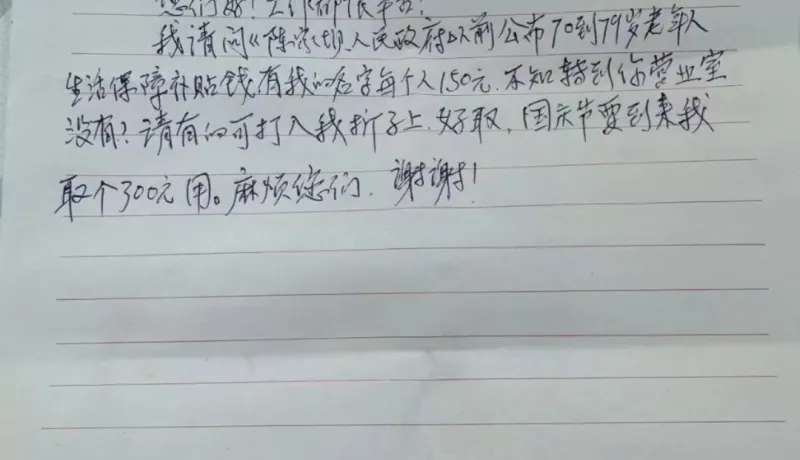 您们好！工作都很辛苦！
我请问《陈家坝人民政府以前公布70到79岁老年人
生活保障补贴钱有我的名字每个人150元.不知转到你营业室
没有？请有的可打入我折子上.好取.国庆节要到来我
取个300元用。麻烦您们.谢谢！